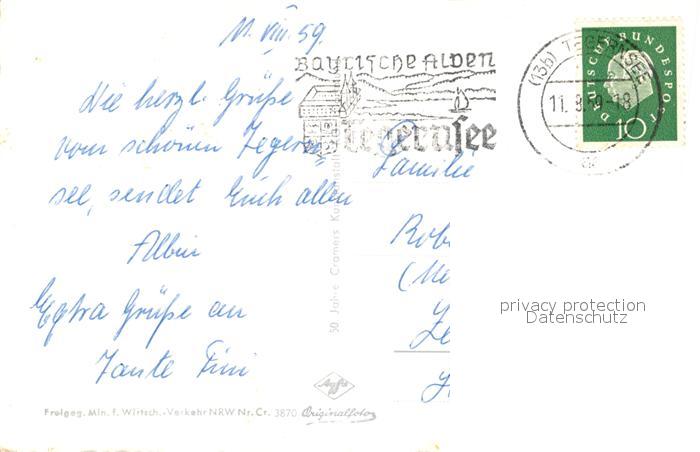 11. VIII. 59.
Die herzl. Grüße
vom schönen Tegern
see, sendet Euch allen
Albin
Extra Grüße an
Tante Fini
Bayrische Alpen
Tegernsee
(13b) TEGERNSEE
11. 8. 59-18
DEUTSCHE BUNDESPOST
10
Familie
Rob
50 Jahre Cramers Kunstanstalt
Agfa
Freigeg. Min. f. Wirtsch.-Verkehr NRW Nr. Cr. 3870 Originalfoto
privacy protection
Datenschutz